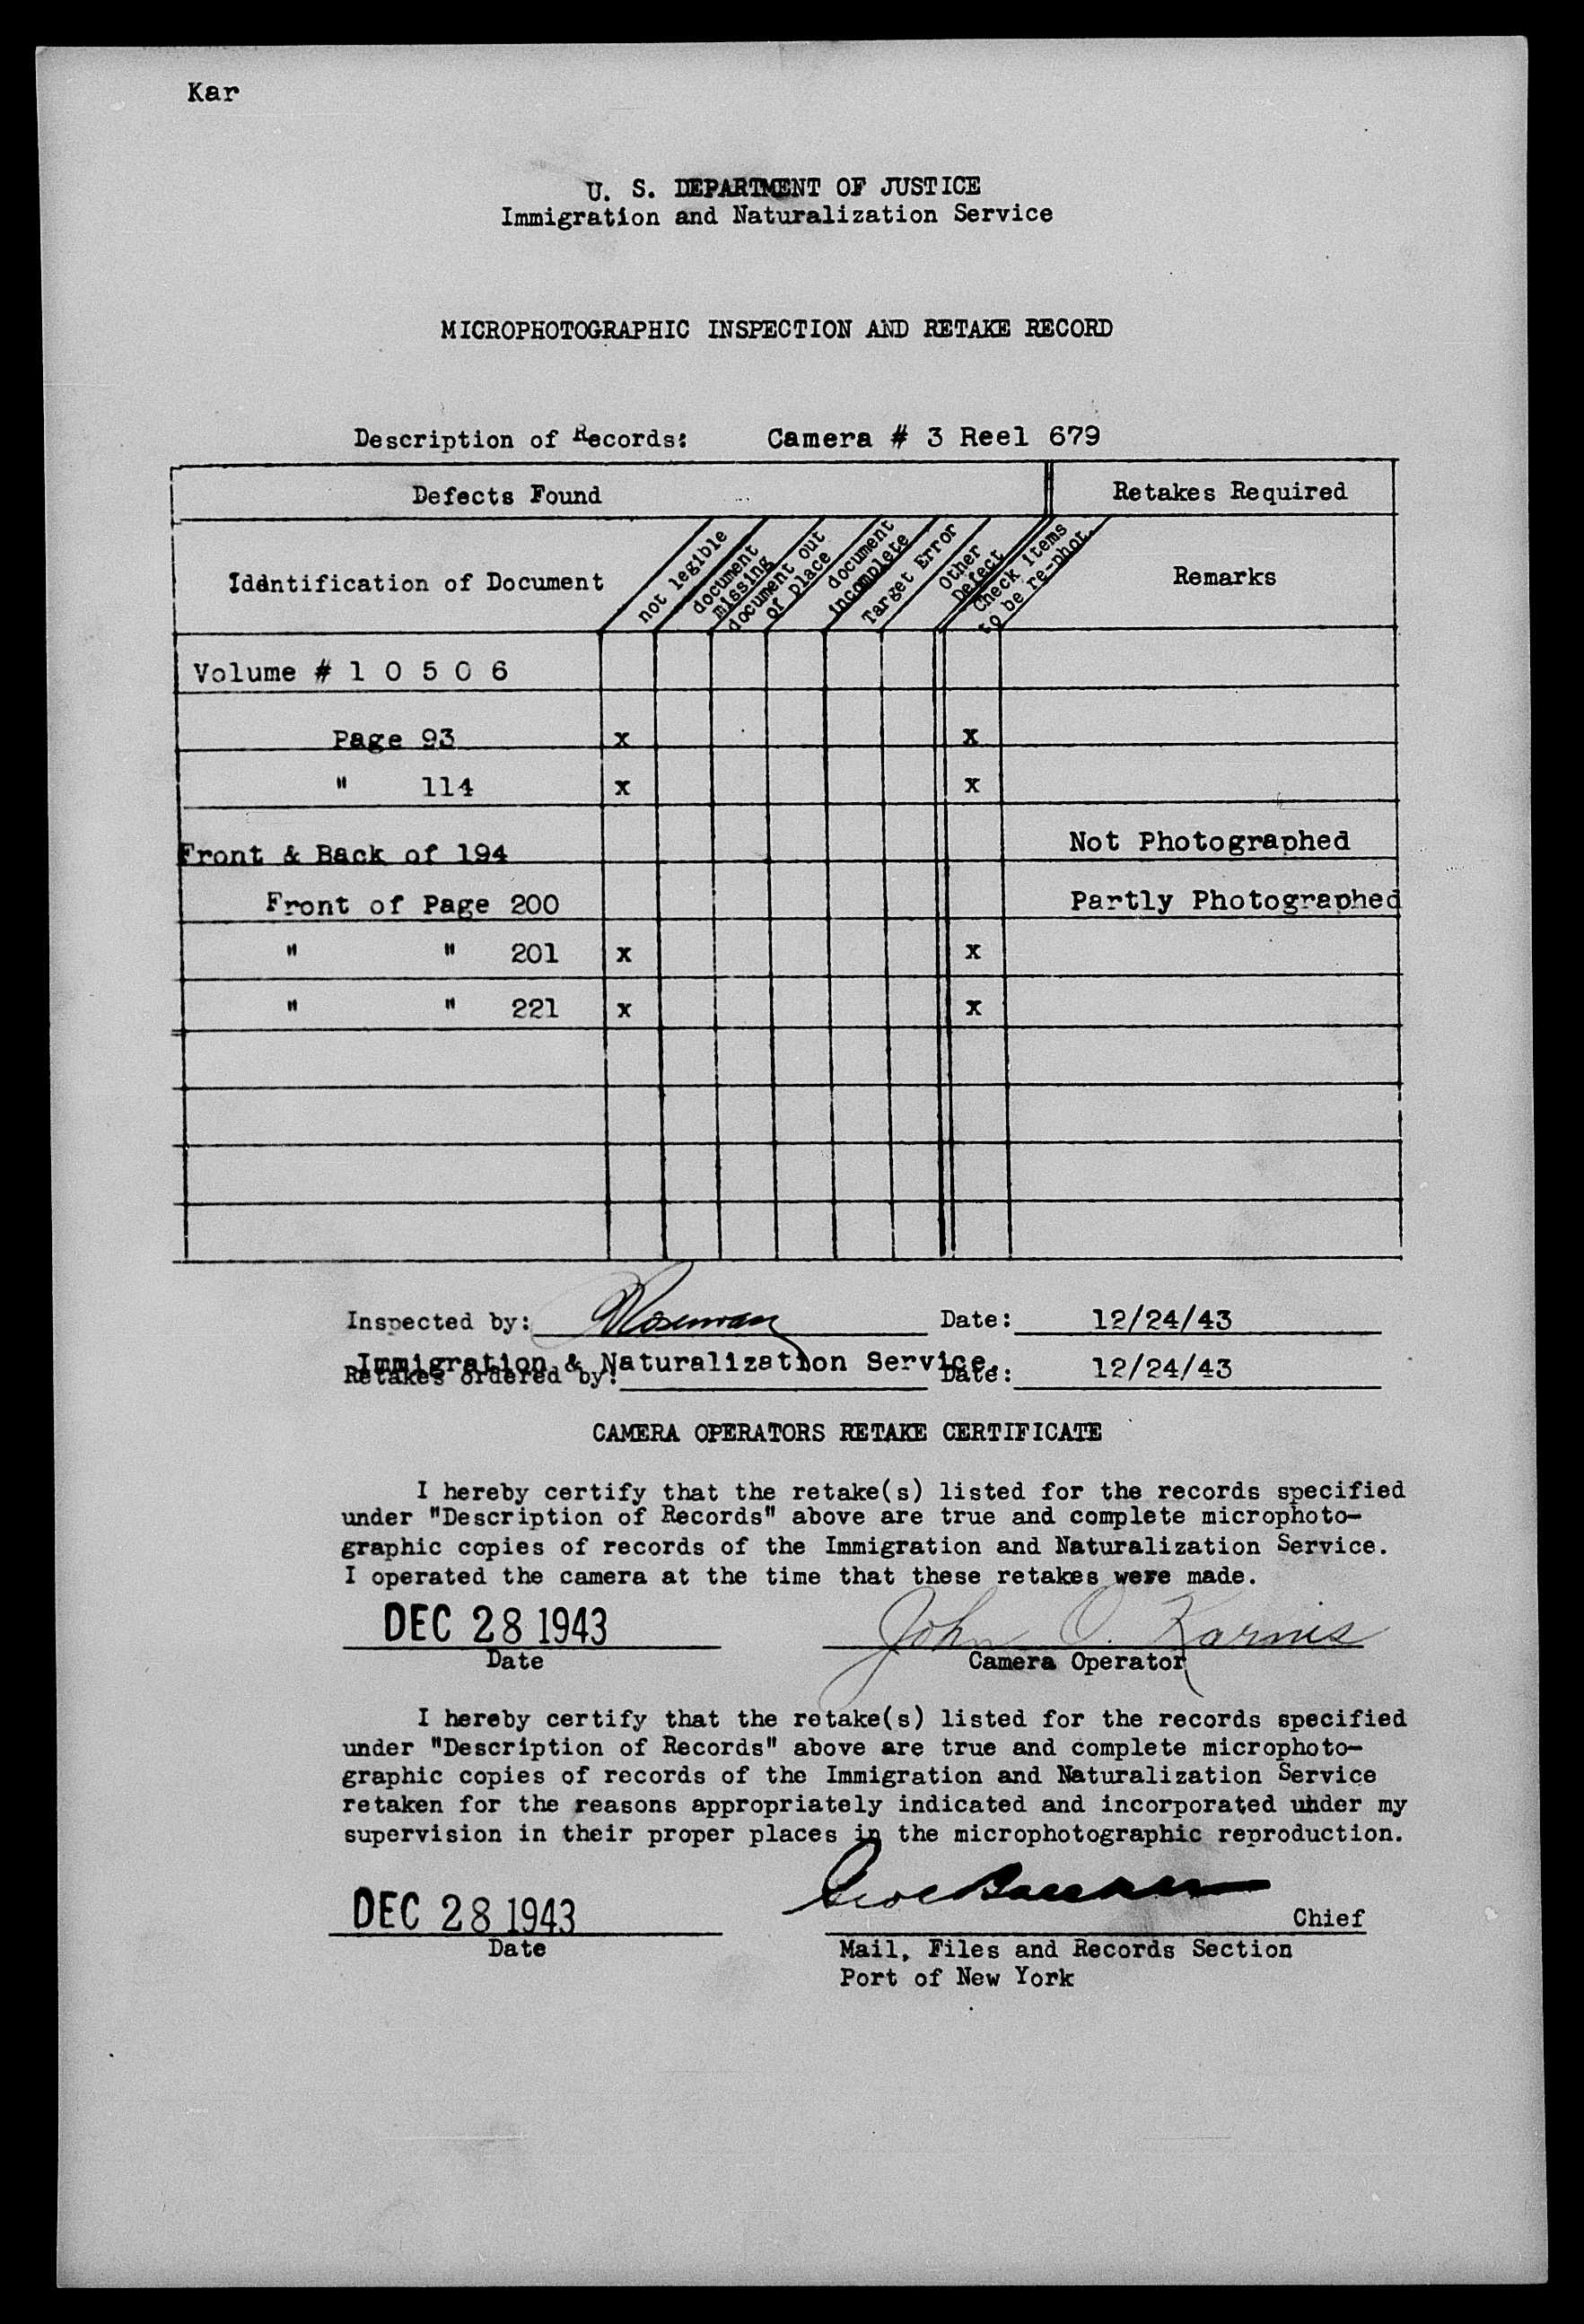 Kar
U. S. DEPARTMENT OF JUSTICE
Immigration and Naturalization Service
MICROPHOTOGRAPHIC INSPECTION AND RETAKE RECORD
Description of Records: Camera # 3 Reel 679
Defects Found Retakes Required
Identification of Document not legible document missing document out of place document incomplete Target Error Other Defect Check items to be re-phot. Remarks
Volume # 1 0 5 0 6
Page 93 x x
" 114 x x
Front & Back of 194 Not Photographed
Front of Page 200 Partly Photographed
" " 201 x x
" " 221 x x
Inspected by: Date: 12/24/43
Immigration & Naturalization Service.
Retakes ordered by: Date: 12/24/43
CAMERA OPERATORS RETAKE CERTIFICATE
I hereby certify that the retake(s) listed for the records specified
under "Description of Records" above are true and complete microphoto-
graphic copies of records of the Immigration and Naturalization Service.
I operated the camera at the time that these retakes were made.
DEC 28 1943 John O. Karnis
Date Camera Operator
I hereby certify that the retake(s) listed for the records specified
under "Description of Records" above are true and complete microphoto-
graphic copies of records of the Immigration and Naturalization Service
retaken for the reasons appropriately indicated and incorporated under my
supervision in their proper places in the microphotographic reproduction.
DEC 28 1943 Chief
Date Mail, Files and Records Section
Port of New York